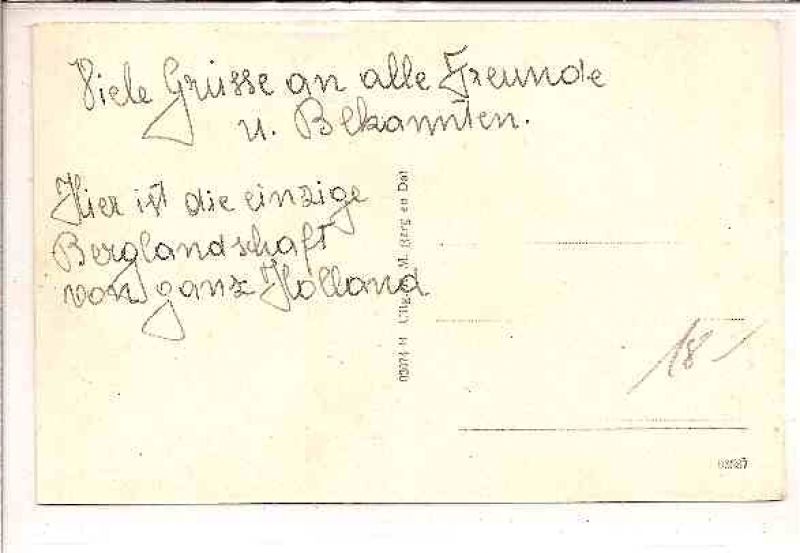 Viele Grüsse an alle Freunde
u. Bekannten.
Hier ist die einzige
Berglandschaft
von ganz Holland
M. Berg en Dal
18-